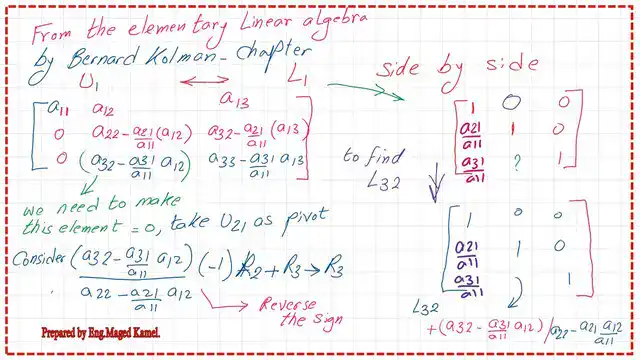 From the elementary Linear algebra
by Bernard Kolman - Chapter
U1 ↔ L1
side by side
a11 a12 a13
0 a22 - a21/a11 (a12) a32 - a21/a11 (a13)
0 (a32 - a31/a11 a12) a33 - a31/a11 a13
1 0 0
a21/a11 1 0
a31/a11 ? 1
to find
L32
we need to make
this element = 0, take U21 as pivot
Consider (a32 - a31/a11 a12) / (a22 - a21/a11 a12) (-1) R2 + R3 → R3
Reverse
the sign
1 0 0
a21/a11 1 0
a31/a11 1
L32
+(a32 - a31/a11 a12) / a22 - a21 a12/a11
Prepared by Eng.Maged Kamel.